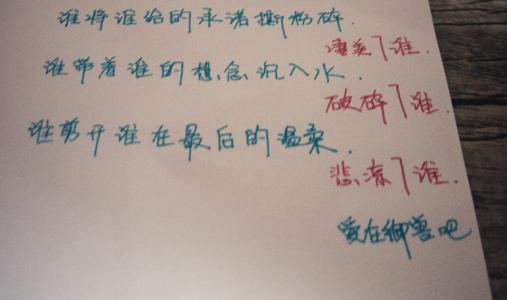 谁将谁给的承诺撕粉碎.
凄美了谁.
谁带着谁的想念沉入水.
破碎了谁.
谁剪开谁在最后的温柔.
悲凉了谁.
爱在御兽吧